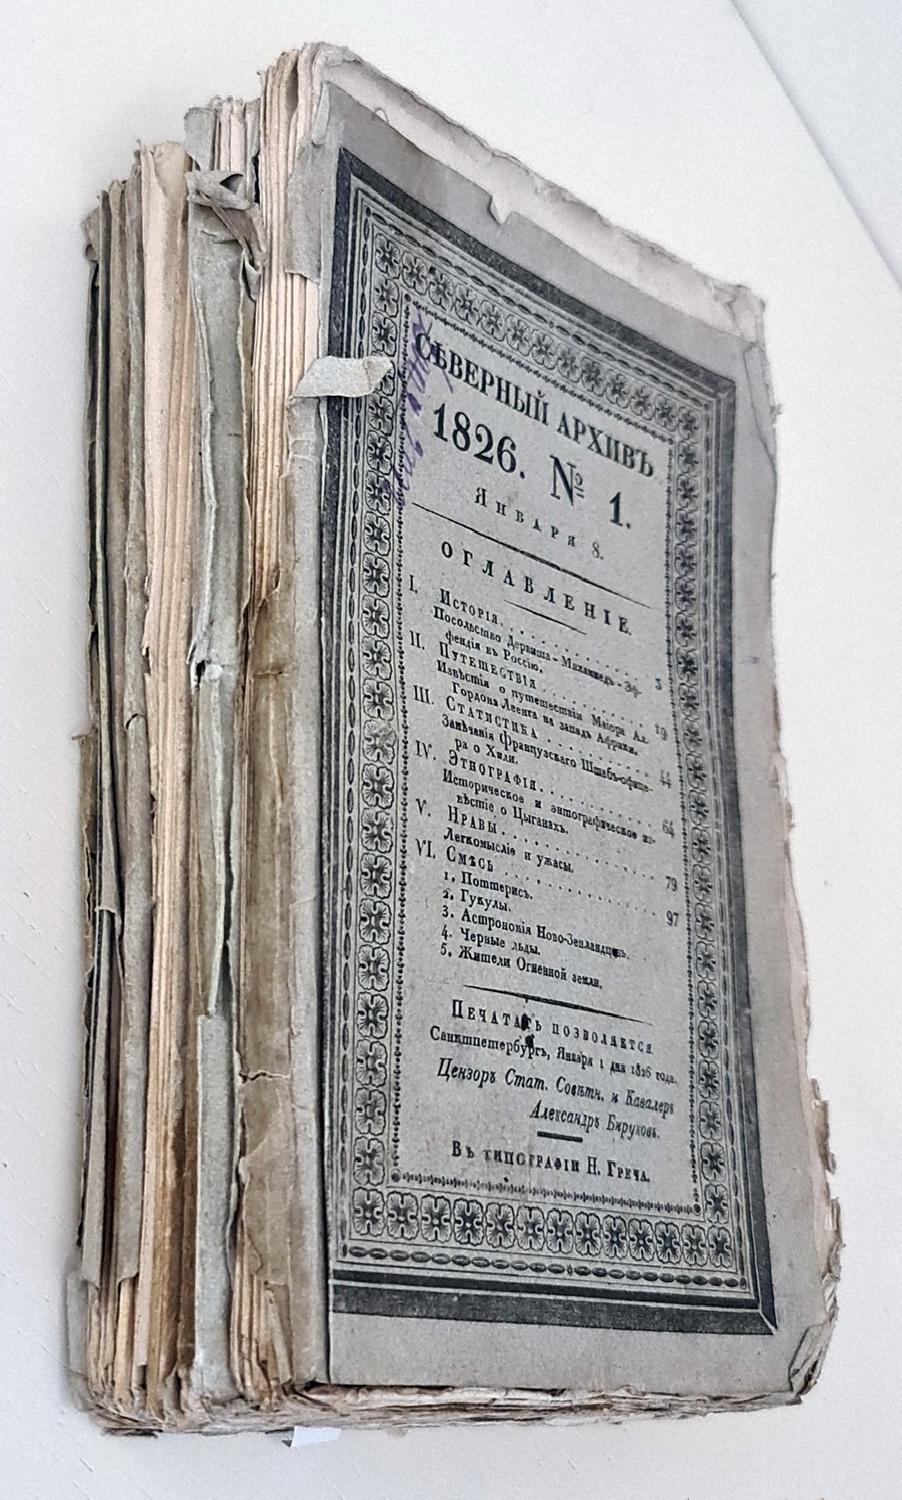 СѢВЕРНЫЙ АРХИВЪ
1826. № 1.
Января 8.
ОГЛАВЛЕНІЕ.
I. Исторія. 3
Посольство Дервиша-Махаммед- Эф-
фендія въ Россію.
II. Путешествія 19
Извѣстія о путешествіи Маіора Ал.
Гордона Леенга на западъ Африки.
III. Статистика 44
Замѣчанія Французскаго Штабъ-офице-
ра о Хили.
IV. Этнографія. 64
Историческое и энтографическое из-
вѣстіе о Цыганахъ.
V. Нравы 79
Легкомысліе и ужасы.
VI. Смѣсь 97
1. Поттерисъ.
2. Гукулы.
3. Астрономія Ново-Зенландцовъ.
4. Черные льды.
5. Жители Огненной земли.
Печатать позволяется
Санктпетербургъ, Января 1 дня 1826 года.
Цензоръ Стат. Совѣтн. и Кавалеръ
Александръ Бируковъ.
Въ типографіи Н. Греча.